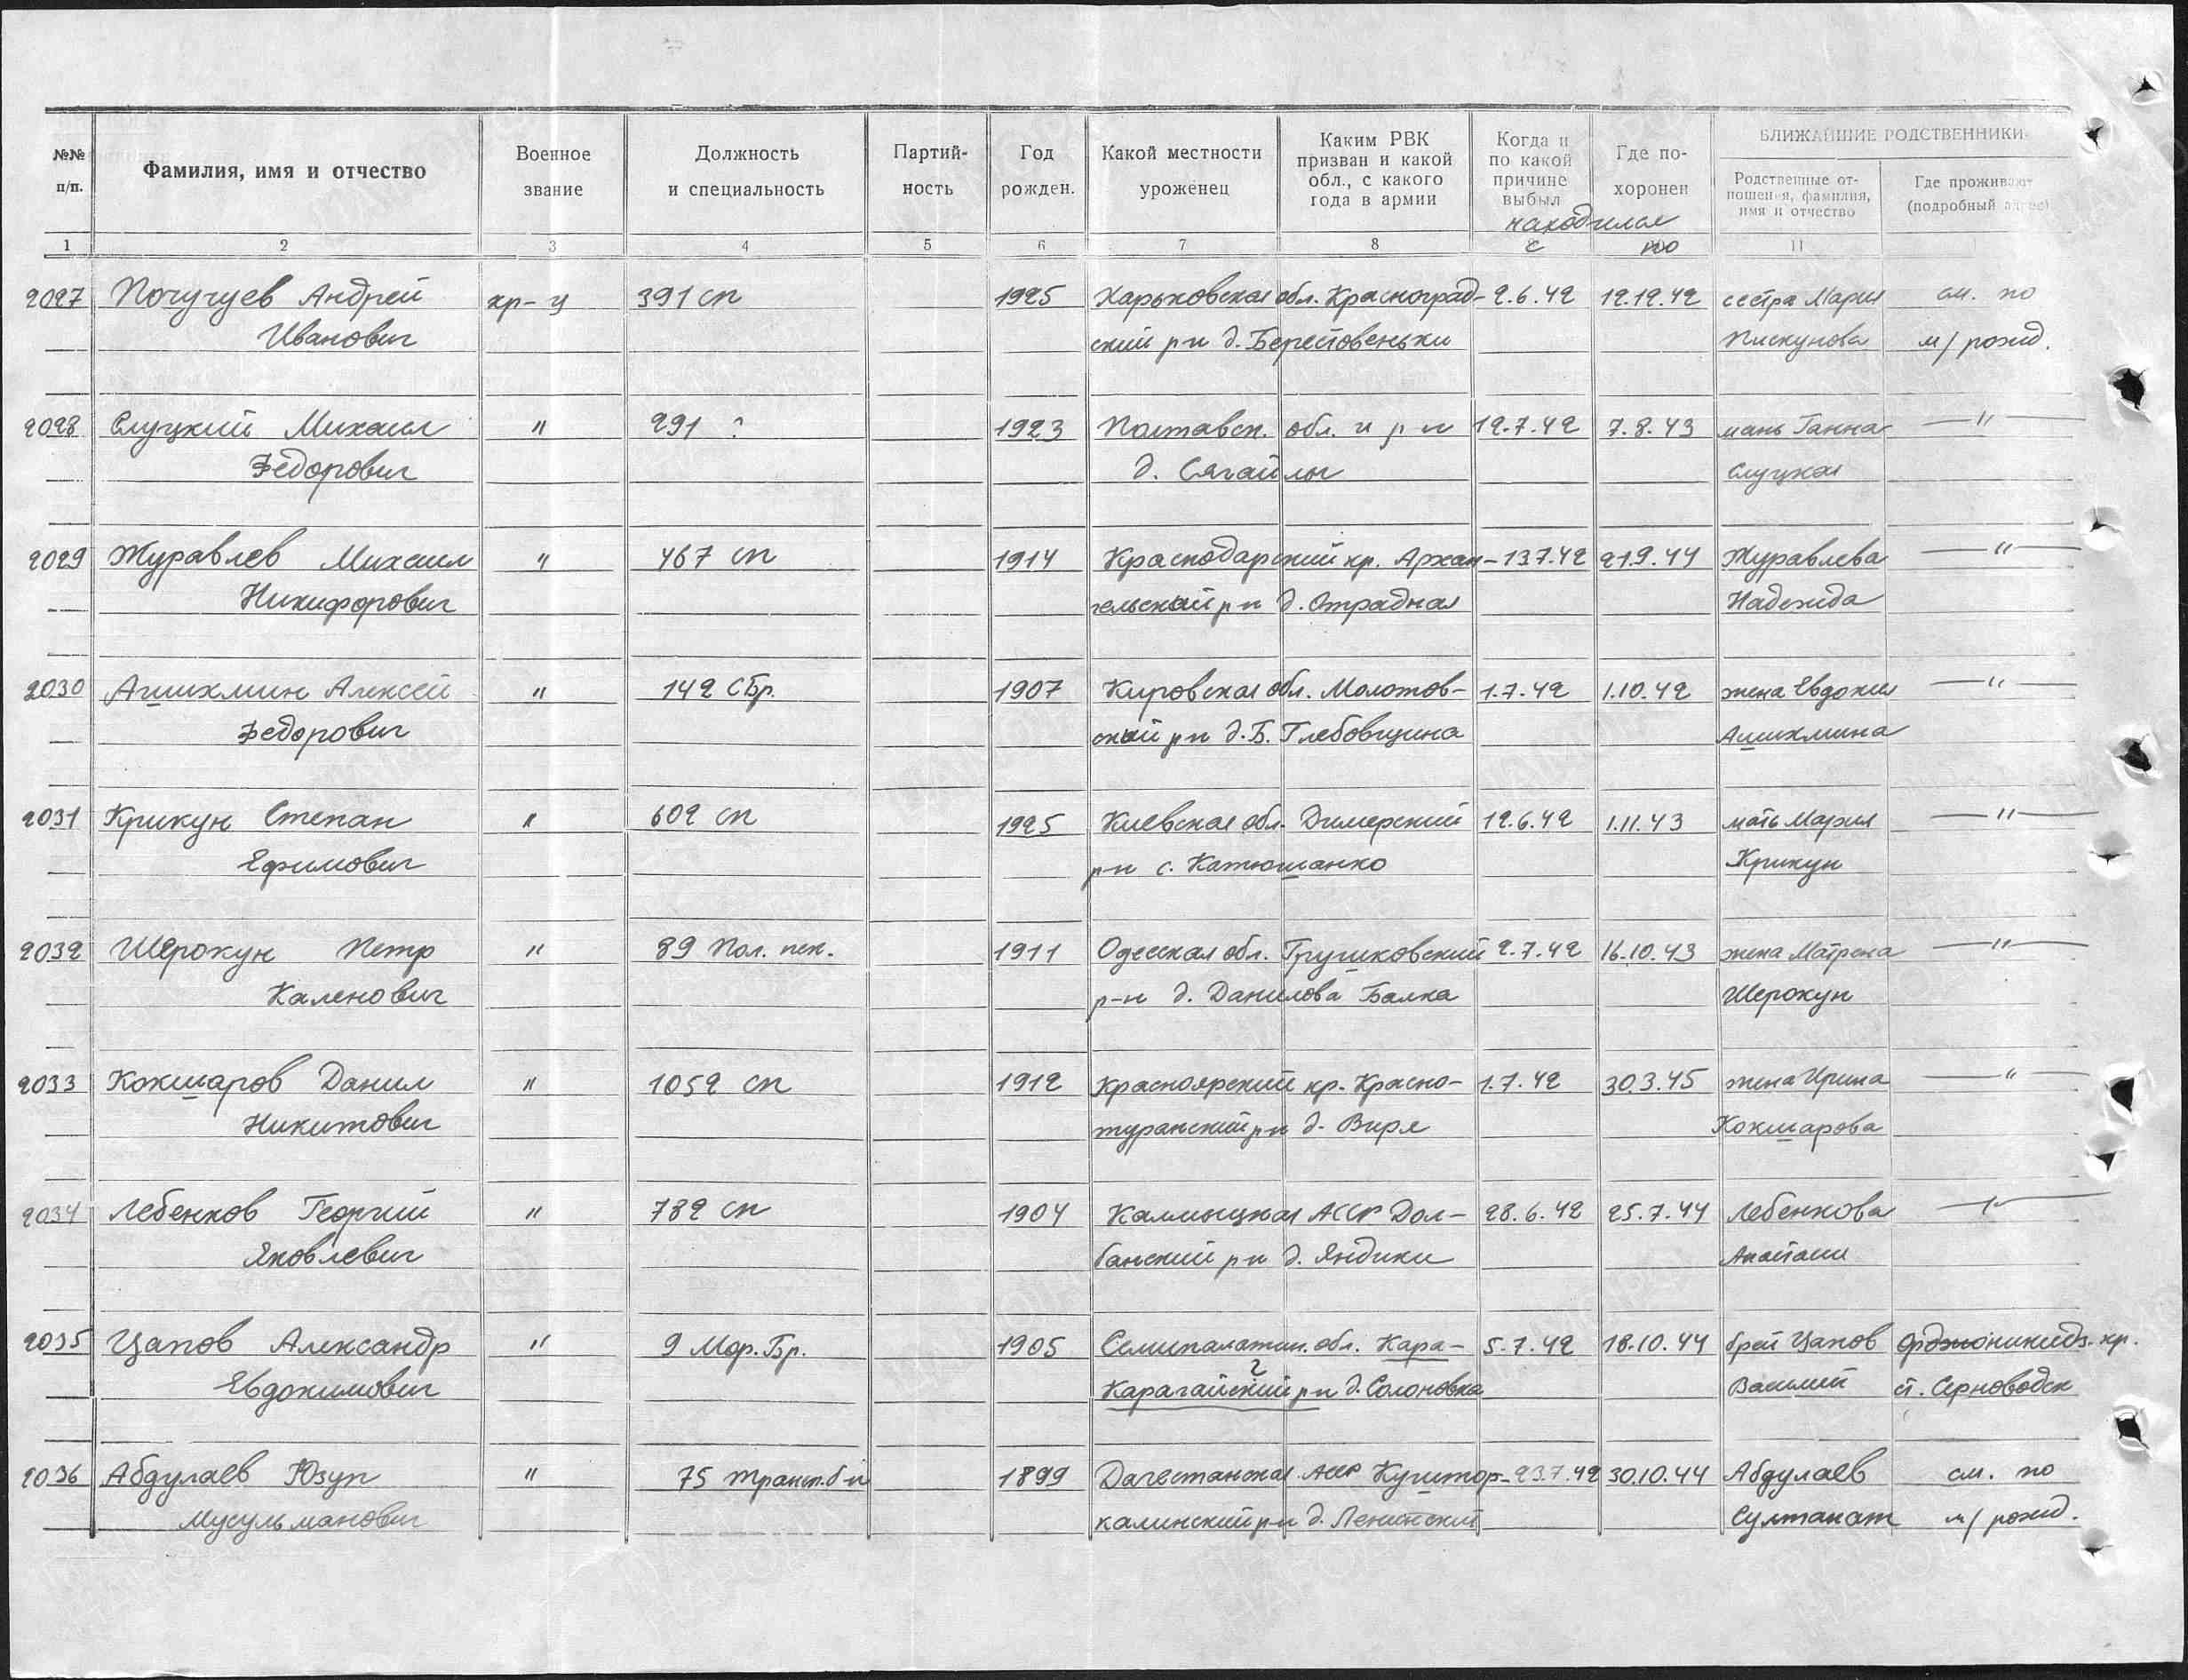 №№ п/п.
Фамилия, имя и отчество
Военное звание
Должность и специальность
Партий-
ность
Год рожден.
Какой местности уроженец
Каким РВК призван и какой обл., с какого года в армии
Когда и по какой причине выбыл
Где по-
хоронен
находился
БЛИЖАЙШИЕ РОДСТВЕННИКИ
Родственные от-
ношения, фамилия, имя и отчество
Где проживают (подробный адрес)
1 2 3 4 5 6 7 8 с по 11
2027 Почучуев Андрей кр-ц 391 сп 1925 Харьковская обл. Красноград- 2.6.42 12.12.42 сестра Мария см. по
Иванович ский р-н д. Берестовеньки Пискунова м/рожд.
2028 Слуцкий Михаил " 291 ? 1923 Полтавск. обл. и р-н 12.7.42 7.8.43 мать Ганна —"—
Федорович д. Сягайлы Слуцкая
2029 Журавлев Михаил " 467 сп 1914 Краснодарский кр. Архан- 13.7.42 21.9.44 Журавлева —"—
Никифорович гельский р-н д. Отрадная Надежда
2030 Ашихмин Алексей " 142 СБр. 1907 Кировская обл. Молотов- 1.7.42 1.10.42 жена Евдокия —"—
Федорович ский р-н д. Б. Глебовщина Ашихмина
2031 Крикун Степан " 602 сп 1925 Киевская обл. Димерский 12.6.42 1.11.43 мать Мария —"—
Ефимович р-н с. Катюшанко Крикун
2032 Шерокун Петр " 89 Пол. пек. 1911 Одесская обл. Грушковский 2.7.42 16.10.43 жена Матрена —"—
Каленович р-н д. Данилова Балка Шерокун
2033 Кокшаров Данил " 1052 сп 1912 Красноярский кр. Красно- 1.7.42 30.3.45 жена Ирина —"—
Никитович туранский р-н д. Виря Кокшарова
2034 Лебенков Георгий " 782 сп 1904 Калмыцкая АССР Дол- 28.6.42 25.7.44 Лебенкова —"—
Яковлевич банский р-н д. Яндики
2035 Цапов Александр " 9 Мор. Бр. 1905 Семипалатин. обл. Кара- 5.7.42 18.10.44 брат Цапов Орджоникидз. кр.
Евдокимович Карагайский р-н д. Солоновка Василий ст. Серноводск
2036 Абдулаев Юзуп " 75 трансп. б-н 1899 Дагестанская АССР Куштор- 23.7.42 30.10.44 Абдулаев см. по
Мусульманович калинский р-н д. Ленинский Султанат м/рожд.